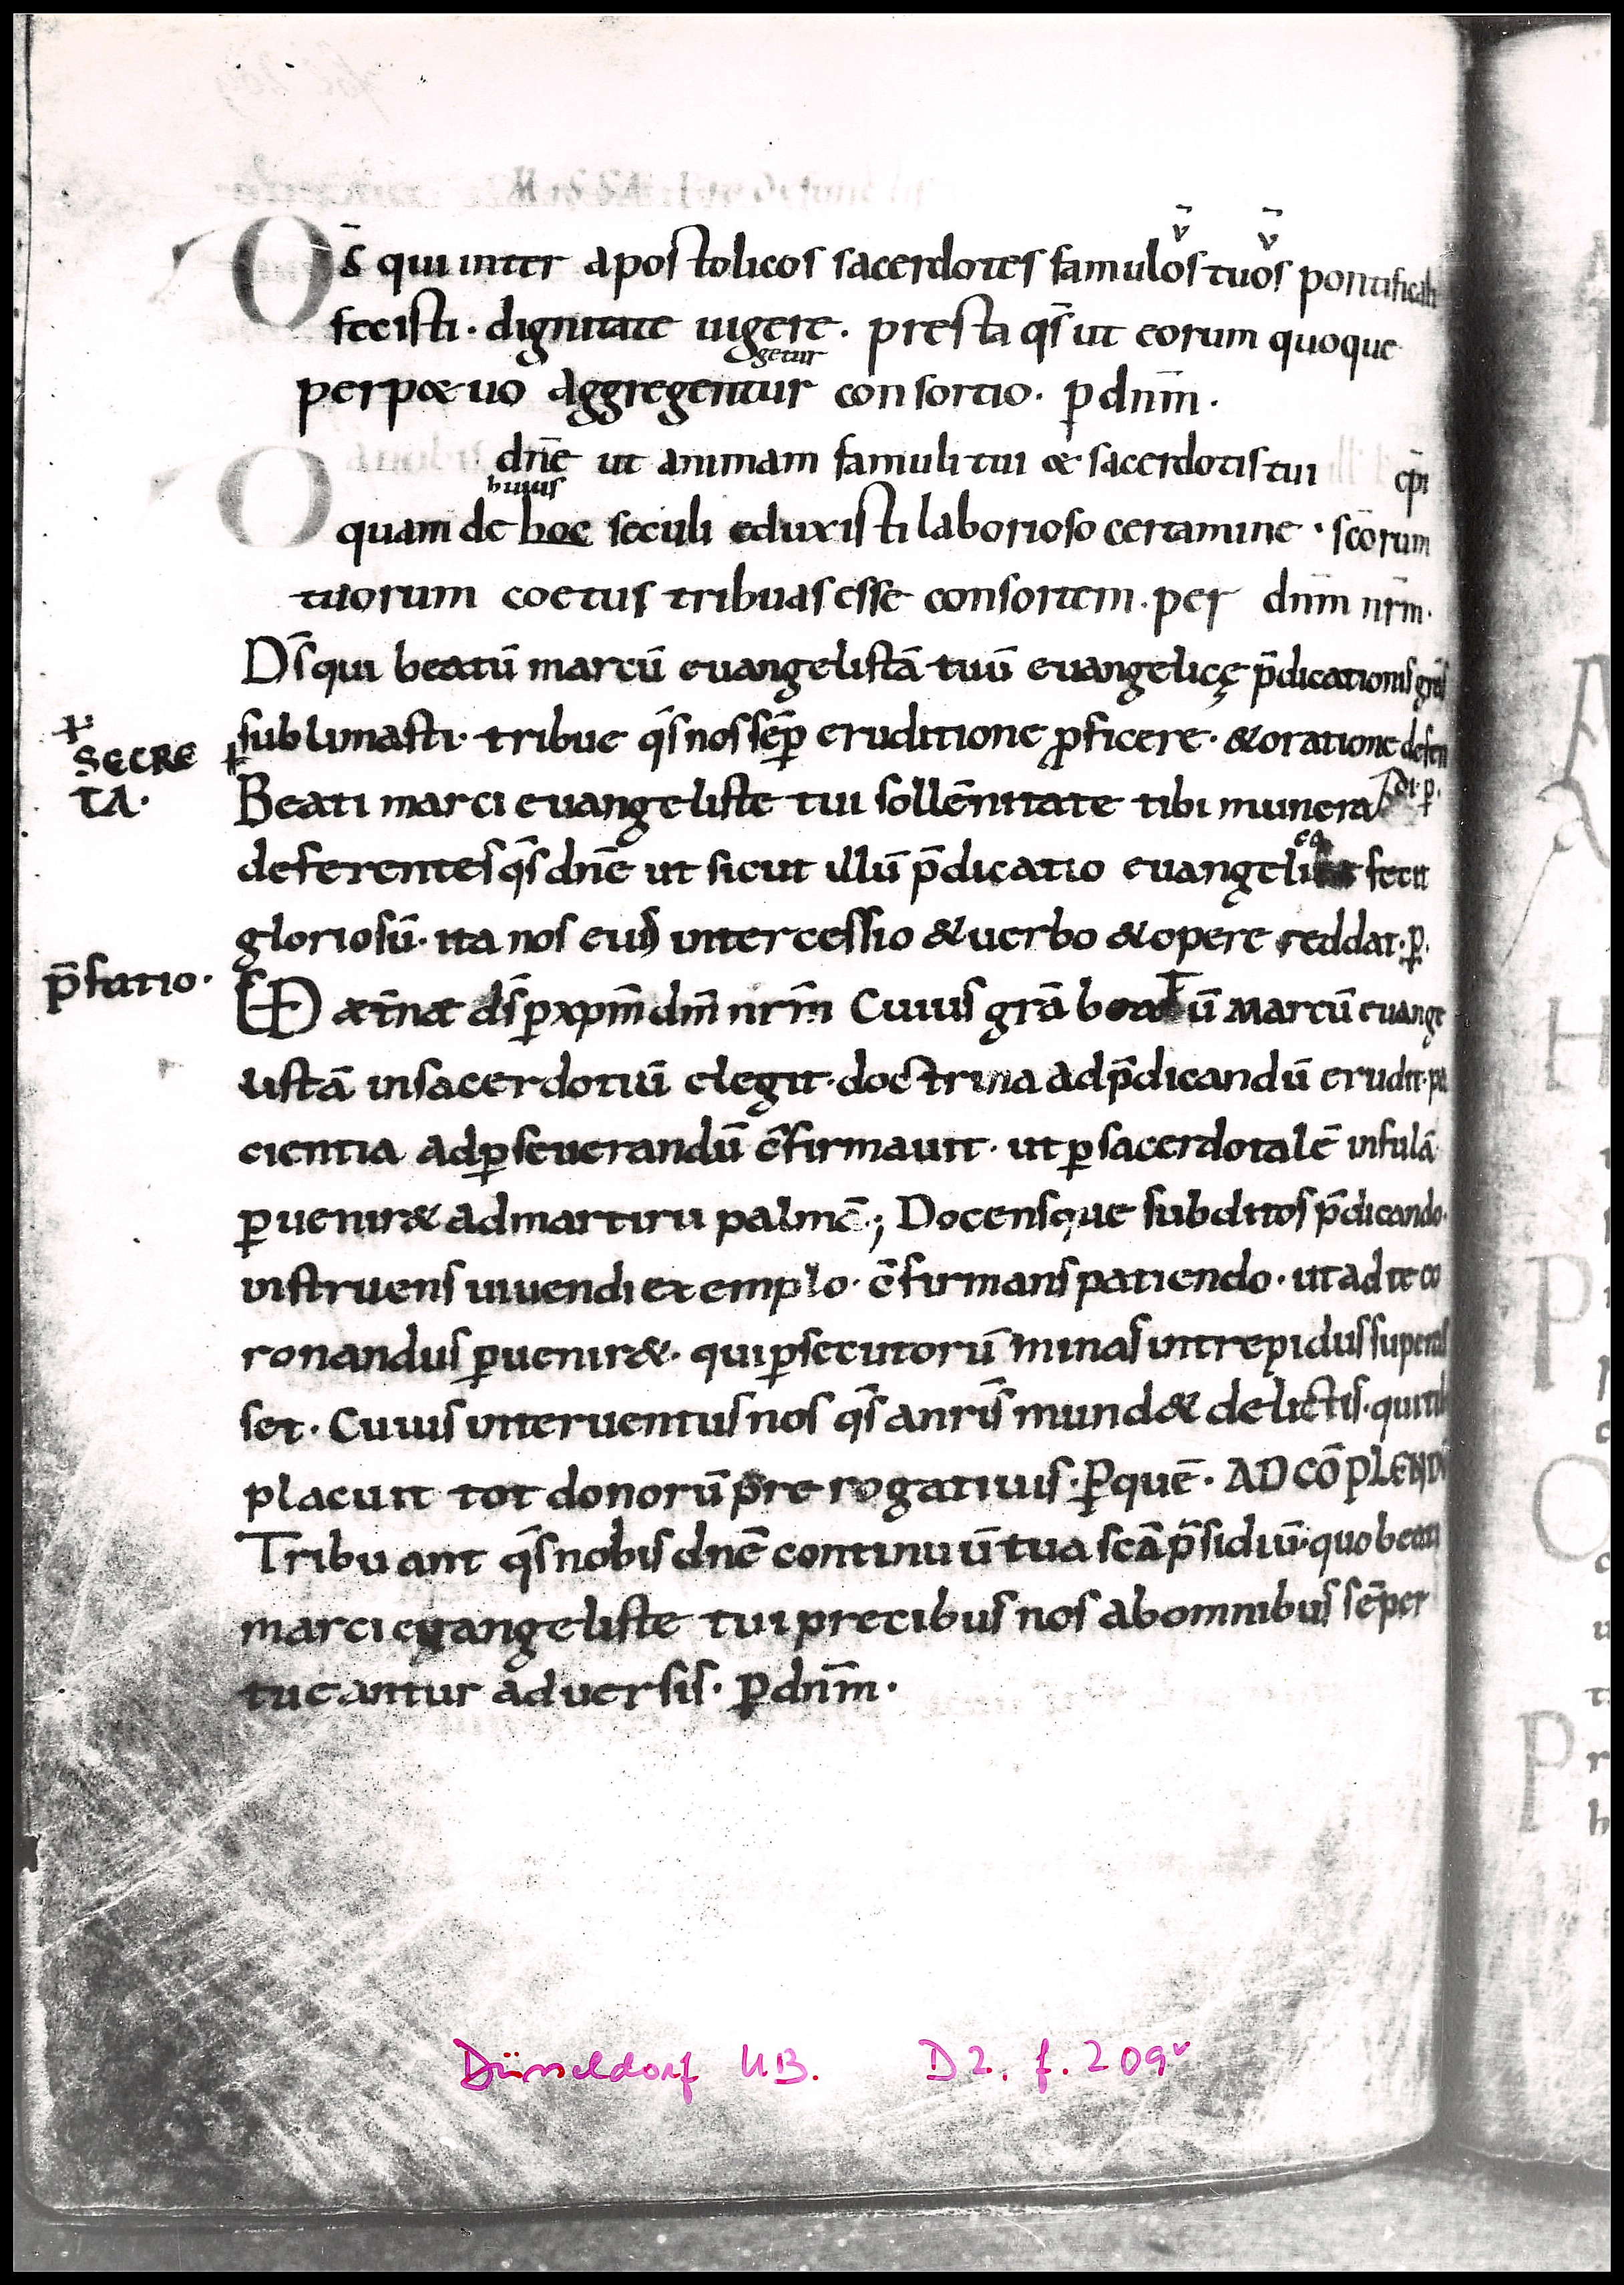 D̄s qui inter apostolicos sacerdotes famulos tuos pontificali
fecisti · dignitate uigere · presta q̄s ut eorum quoque
getur
perpetuo aggregentur consortio · ꝑ dn̄m ·
dn̄e ut animam famuli tui & sacerdotis tui ep̄i
huius
quam de hoc seculi eduxisti laborioso certamine · sc̄orum
tuorum coetus tribuas esse consortem · per dn̄m nr̄m ·
D̄s qui beatū marcū euangelistā tuū euangelicę p̄dicationis gr̄a
sublimasti · tribue q̄s nos sēp eruditione ꝓficere · & oratione defen
SECRE
TA ·
di · ꝑ ·
Beati marci euangeliste tui sollēnitate tibi munera
deferentes q̄s dn̄e ut sicut illū p̄dicatio euangelica fecit
gloriosū · ita nos eius intercessio & uerbo & opere reddat · ꝑ ·
p̄fatio ·
VD aet̄nae d̄s ꝑ xp̄m dn̄m nr̄m Cuius gr̄a beatū Marcū euange
listā in sacerdotiū elegit · doctrina ad p̄dicandū erudit · pa
cientia ad ꝑseuerandū c̄firmauit · ut ꝑ sacerdotalē infulā
ꝑuenir& ad martirii palmā ; Docensque subditos p̄dicando ·
instruens uiuendi exemplo · c̄firmans patiendo · ut ad te co
ronandus ꝑuenir& · qui ꝑsecutorū minas intrepidus superas
set · Cuius interuentus nos q̄s a nr̄is mund& delictis · qui tibi
placuit tot donorū prerogatiuis · ꝑ quē · AD CŌPLEND
Tribuant q̄s nobis dn̄e continuū tua sc̄a p̄sidiū · quo beati
marci euangeliste tui precibus nos ab omnibus sēper
tueantur aduersis · ꝑ dn̄m ·
Düsseldorf U.B. D2. f. 209ᵛ